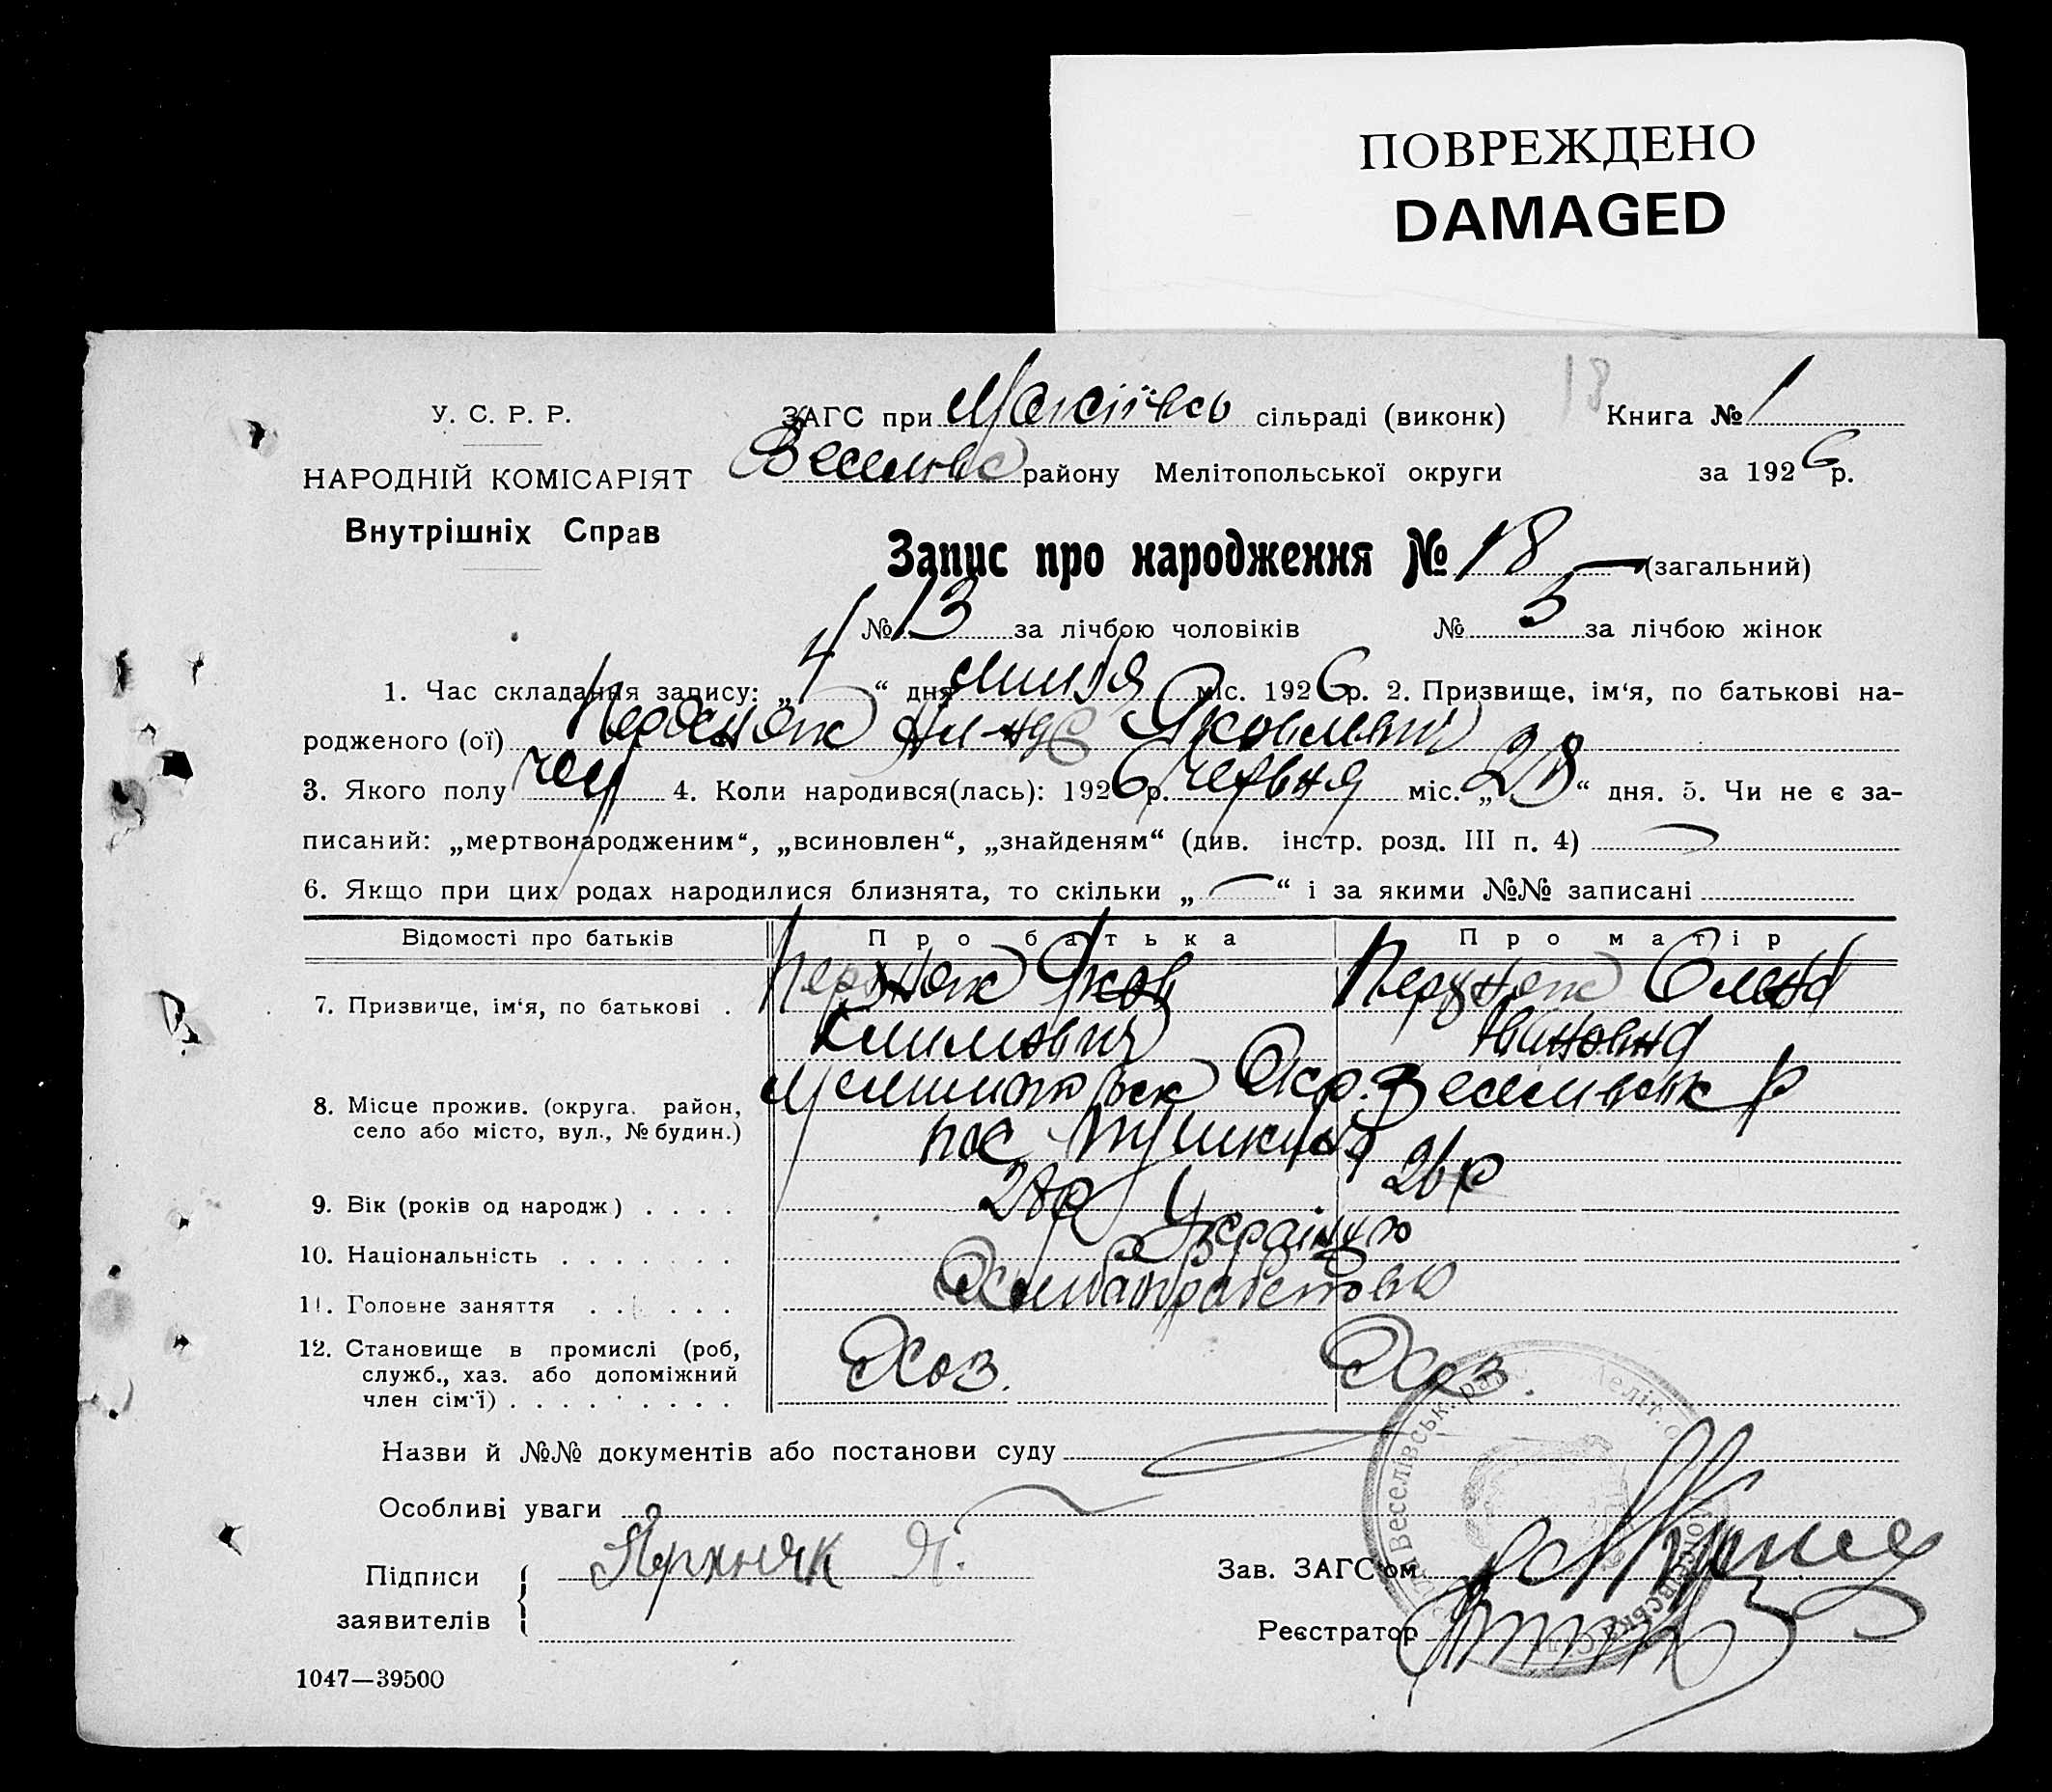 ПОВРЕЖДЕНО
DAMAGED
18
У. С. Р. Р.
НАРОДНІЙ КОМІСАРІЯТ
Внутрішніх Справ
ЗАГС при сільраді (виконк)
Книга № 1
району Мелітопольської округи
за 1926 р.
Запис про народження № 18 — (загальний)
№ 13 за лічбою чоловіків № 5 за лічбою жінок
1. Час складання запису: „4“ дня липня міс. 1926 р. 2. Призвище, ім‘я, по батькові на-
родженого (ої) Яковлевич
3. Якого полу чол 4. Коли народився(лась): 1926 р. червня міс. „28“ дня. 5. Чи не є за-
писаний: „мертвонародженим“, „всиновлен“, „знайденям“ (див. інстр. розд. III п. 4)
6. Якщо при цих родах народилися близнята, то скільки „—“ і за якими №№ записані
Відомості про батьків
Про батька
Про матір
7. Призвище, ім‘я, по батькові .
Яков
Климович
Олена
Ивановна
8. Місце прожив. (округа. район,
село або місто, вул., № будин.)
Окр. Веселивск р
пос
9. Вік (років од народж) . . . .
28р
26р
10. Національність . . . . . . .
Українцю
11. Головне заняття . . . . . .
12. Становище в промислі (роб,
служб., хаз. або допоміжний
член сім‘ї) . . . . . . . . .
Хоз.
Хоз.
Назви й №№ документів або постанови суду
Особливі уваги
Підписи
заявителів
Я.
Зав. ЗАГС‘ом
Реєстратор
Веселівськ. рай
Меліт. о
1047—39500